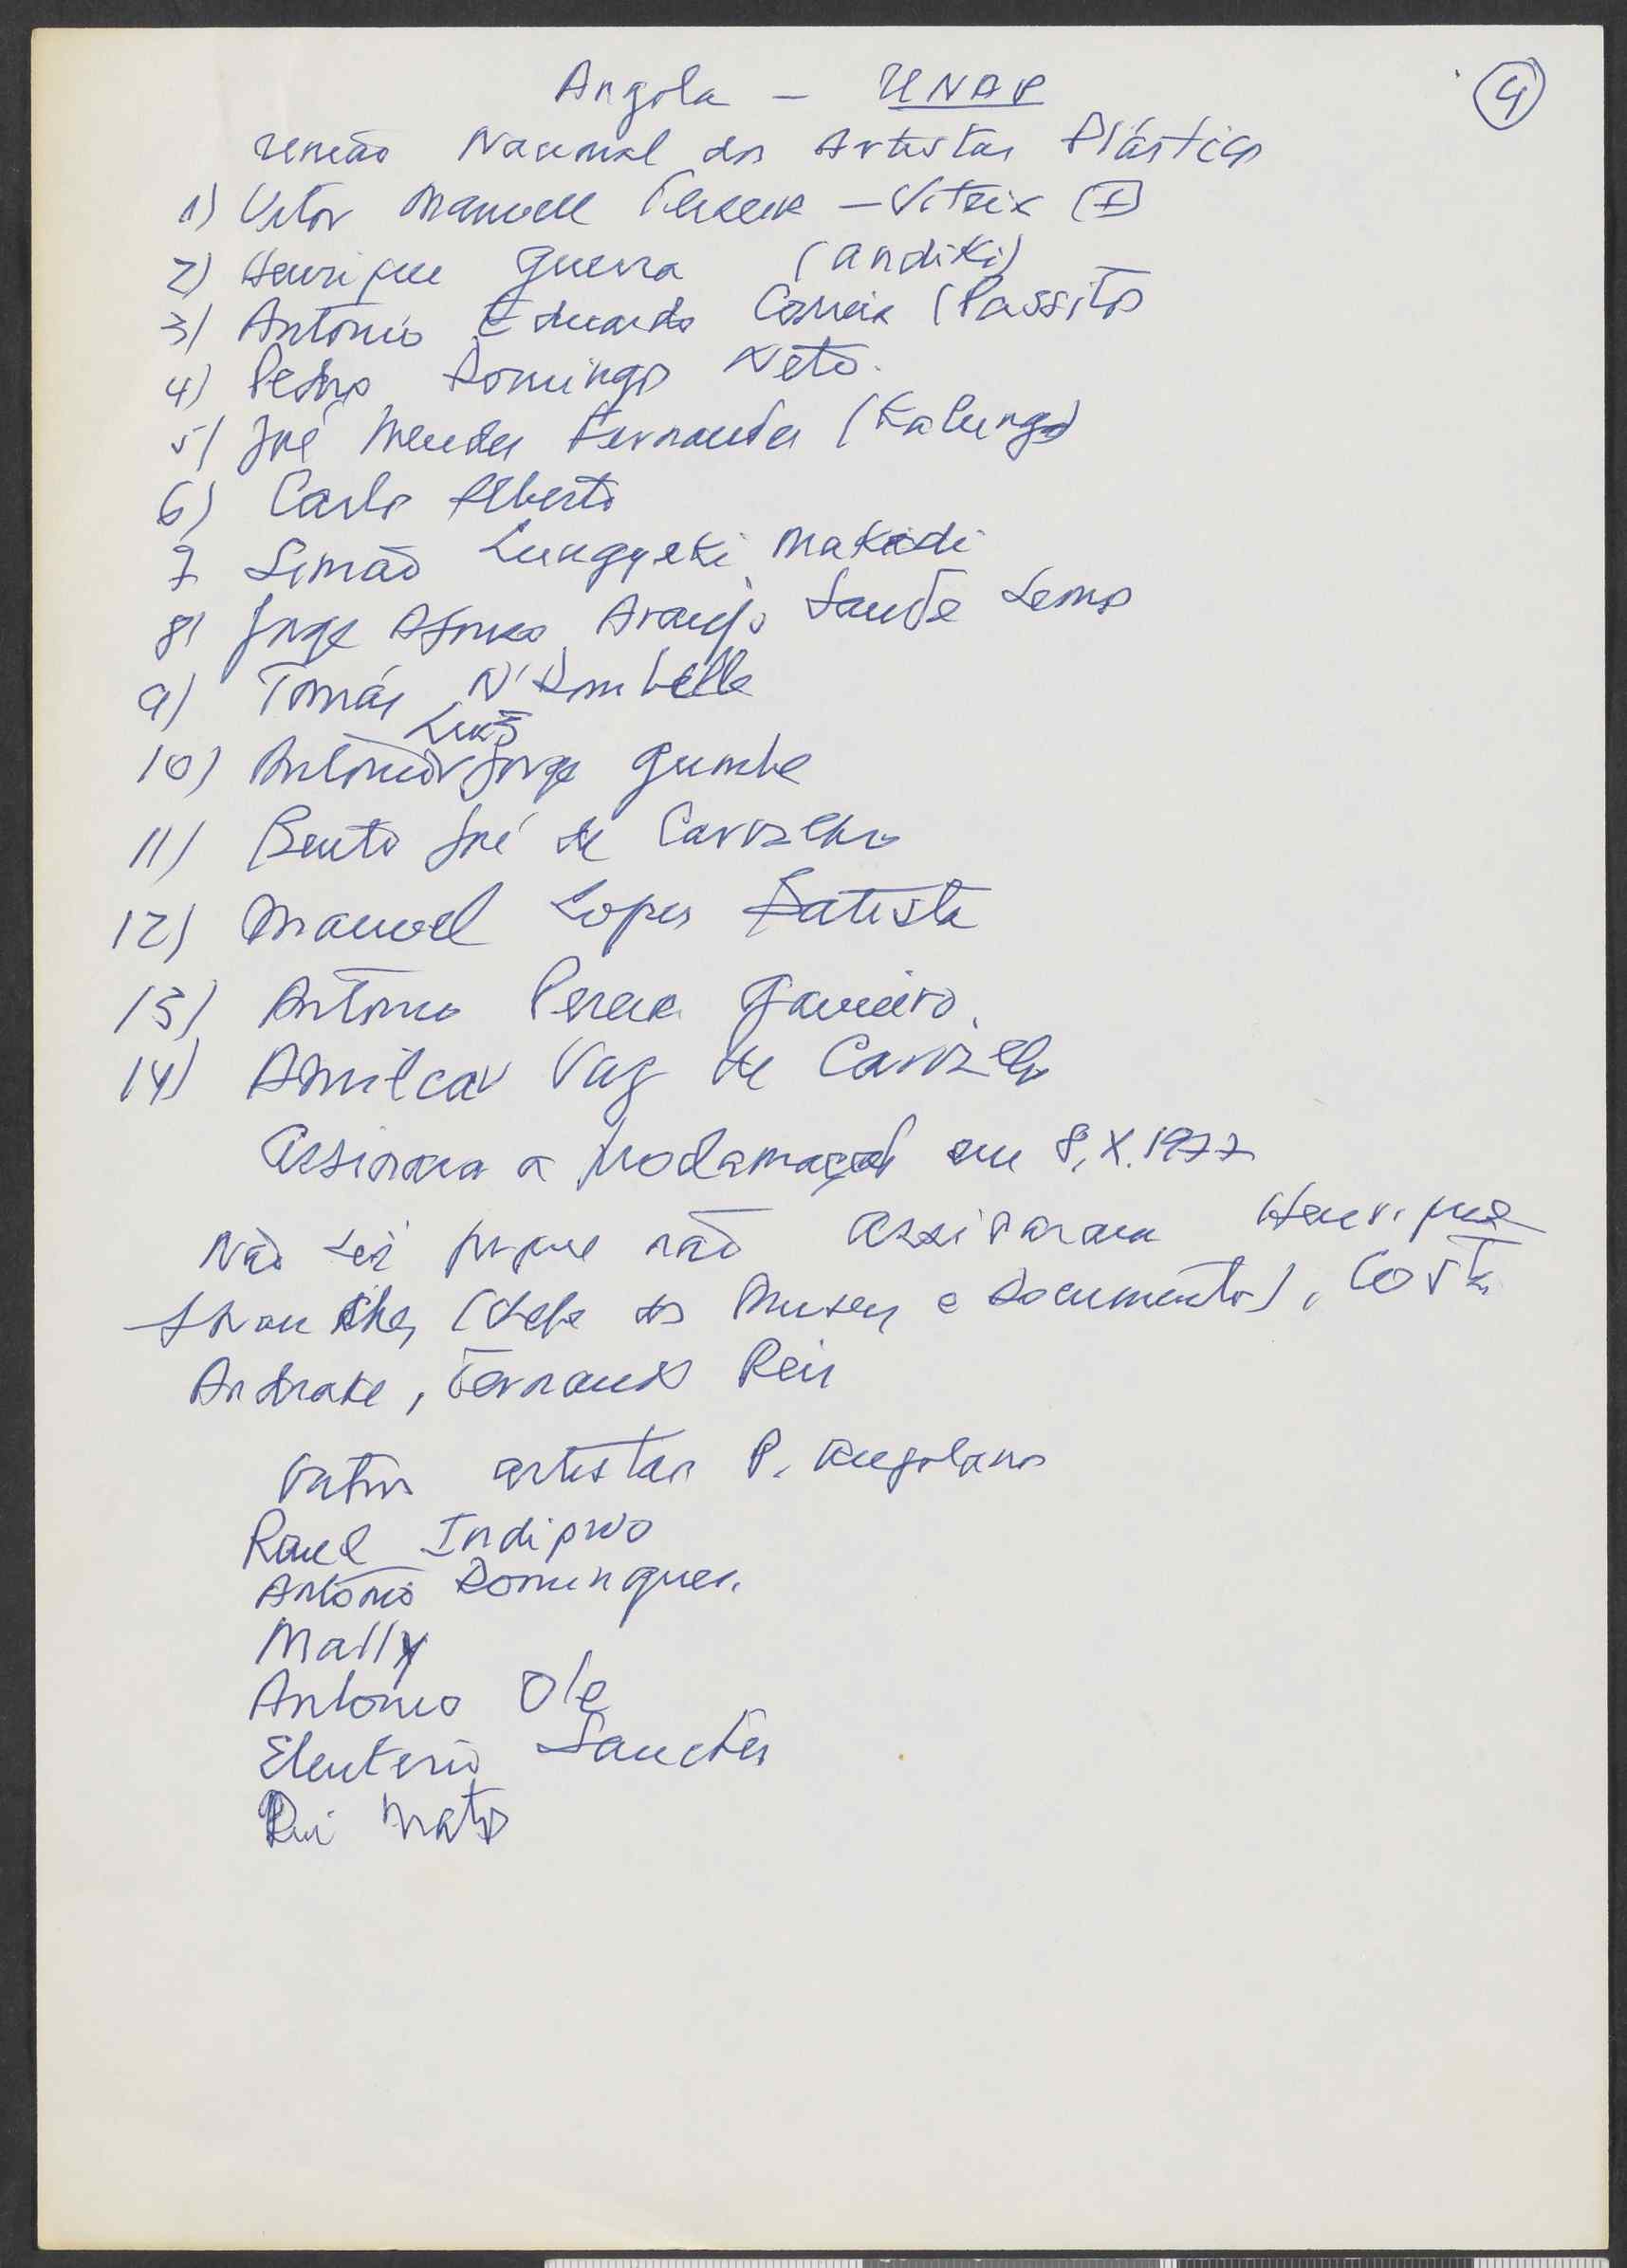 4
Angola - UNAP
União Nacional dos Artistas Plásticos
1) Vitor Manuel Teixeira - Viteix (+)
2) Henrique Guerra (Andiki)
3) António Eduardo Correia (Passitos
4) Pedro Domingos Neto.
5) José Mendes Fernandes (Kalungo)
6) Carlos Alberto
7 Simão Makiadi
8) Jorge Afonso Araujo Lemos
9) Tomás N'Dombelle
Luis
10) António Jorge Gumbe
11) Bento José de Carvalho
12) Manuel Lopes Batista
13) António Pereira
14) Amilcar Vaz de Carvalho
Assinara a proclamação em 8.X.1977
Não sei porque não assinaram Henrique
Abranches (Chefe dos Museus e Documentos), Costa
Andrade, Fernando Reis
Outros artistas P. Angolanos
Raul Indipwo
António Domingues.
Mally
António Ole
Eleuterio Sanches
Rui Matos